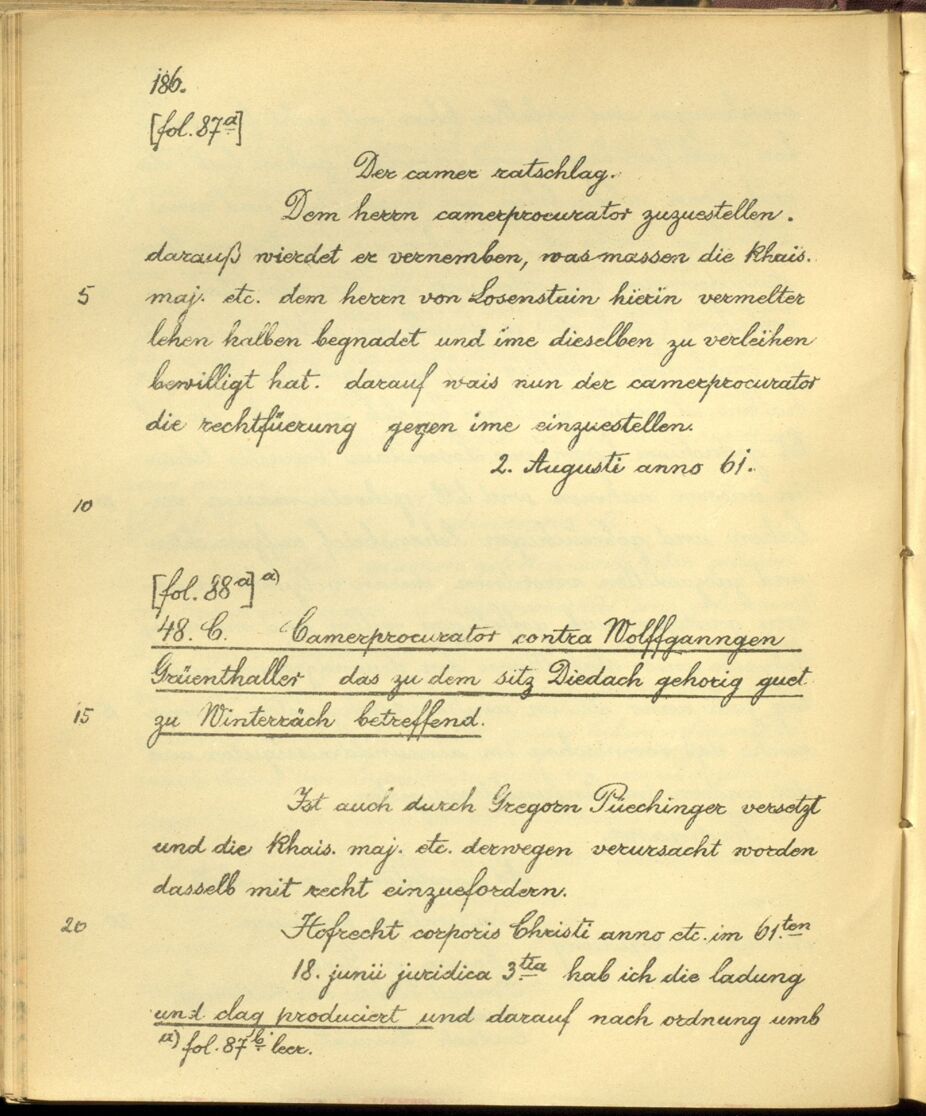 186.
[fol. 87a]
Der camer ratschlag.
Dem herrn camerprocurator zuzuestellen.
darauß wierdet er vernemben, was massen die khais.
5 maj. etc. dem herrn von Losenstain hierin vermelter
lehen halben begnadet und ime dieselben zu verleihen
bewilligt hat. darauf wais nun der camerprocurator
die rechtfüerung gegen ime einzuestellen.
2. Augusti anno 61.
10
[fol. 88a] a)
48. C. Camerprocurator contra Wolffganngen
Grüenthaller das zu dem sitz Diedach gehorig guet
15 zu Winterräch betreffend.
Ist auch durch Gregorn Püechinger versetzt
und die khais. maj. etc. derwegen verursacht worden
dasselb mit recht einzuefordern.
20 Hofrecht corporis Christi anno etc. im 61.ten
18. junii juridica 3tia hab ich die ladung
und clag produciert und darauf nach ordnung umb
a) fol. 87b leer.